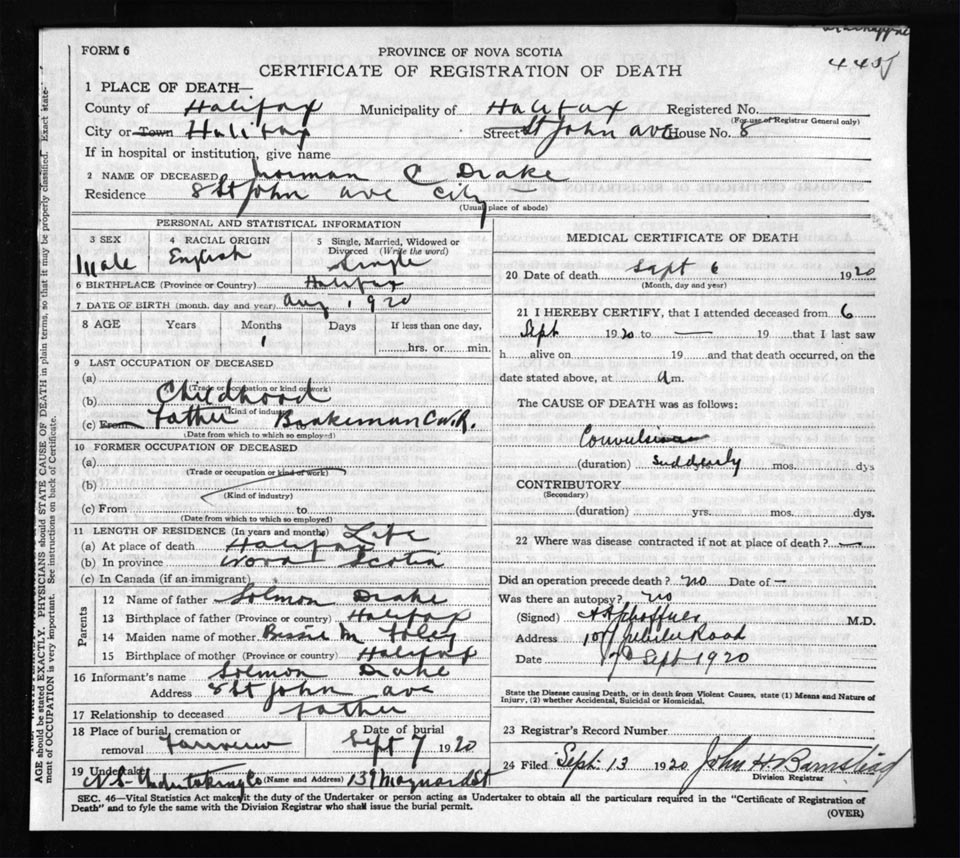 FORM 6
PROVINCE OF NOVA SCOTIA
4405
CERTIFICATE OF REGISTRATION OF DEATH
1 PLACE OF DEATH—
County of Halifax Municipality of Halifax Registered No.
(For use of Registrar General only)
City or Town Halifax Street St John ave House No. 8
If in hospital or institution, give name
2 NAME OF DECEASED Norman C Drake
Residence 8 St John ave City
(Usual place of abode)
PERSONAL AND STATISTICAL INFORMATION
3 SEX Male
4 RACIAL ORIGIN English
5 Single, Married, Widowed or Divorced (Write the word) Single
6 BIRTHPLACE (Province or Country) Halifax
7 DATE OF BIRTH (month, day and year) Aug 1 1920
8 AGE Years Months Days If less than one day,
1 hrs. or min.
9 LAST OCCUPATION OF DECEASED
(a)
(Trade or occupation or kind of work)
(b) Childhood
(Kind of industry)
(c) From Father Brakeman C.N.R.
(Date from which to which so employed)
10 FORMER OCCUPATION OF DECEASED
(a)
(Trade or occupation or kind of work)
(b)
(Kind of industry)
(c) From to
(Date from which to which so employed)
11 LENGTH OF RESIDENCE (In years and months) Life
(a) At place of death Halifax
(b) In province Nova Scotia
(c) In Canada (if an immigrant)
Parents
12 Name of father Solmon Drake
13 Birthplace of father (Province or country) Halifax
14 Maiden name of mother Bessie M Foley
15 Birthplace of mother (Province or country) Halifax
16 Informant's name Solemon Drake
Address 8 St John ave
17 Relationship to deceased father
18 Place of burial, cremation or removal Fairview
Date of burial Sept 7 1920
19 Undertaker N.S. Undertaking Co (Name and Address) 139 Maynard St
MEDICAL CERTIFICATE OF DEATH
20 Date of death Sept 6 1920
(Month, day and year)
21 I HEREBY CERTIFY, that I attended deceased from 6
Sept 1920 to — 19 that I last saw
h alive on 19 and that death occurred, on the
date stated above, at a m.
The CAUSE OF DEATH was as follows:
Convulsions
(duration) suddenly mos. dys
CONTRIBUTORY
(Secondary)
(duration) yrs. mos. dys.
22 Where was disease contracted if not at place of death? —
Did an operation precede death? no Date of —
Was there an autopsy? no
(Signed) M.D.
Address 107 Jubilee Road
Date 7 Sept 1920
State the Disease causing Death, or in death from Violent Causes, state (1) Means and Nature of
Injury, (2) whether Accidental, Suicidal or Homicidal.
23 Registrar's Record Number
24 Filed Sept. 13 1920 John H Barnstead
Division Registrar
SEC. 46—Vital Statistics Act makes it the duty of the Undertaker or person acting as Undertaker to obtain all the particulars required in the "Certificate of Registration of
Death" and to fyle the same with the Division Registrar who shall issue the burial permit.
(OVER)
AGE should be stated EXACTLY. PHYSICIANS should STATE CAUSE OF DEATH in plain terms, so that it may be properly classified. Exact state-
ment of OCCUPATION is very important. See instructions on back of Certificate.